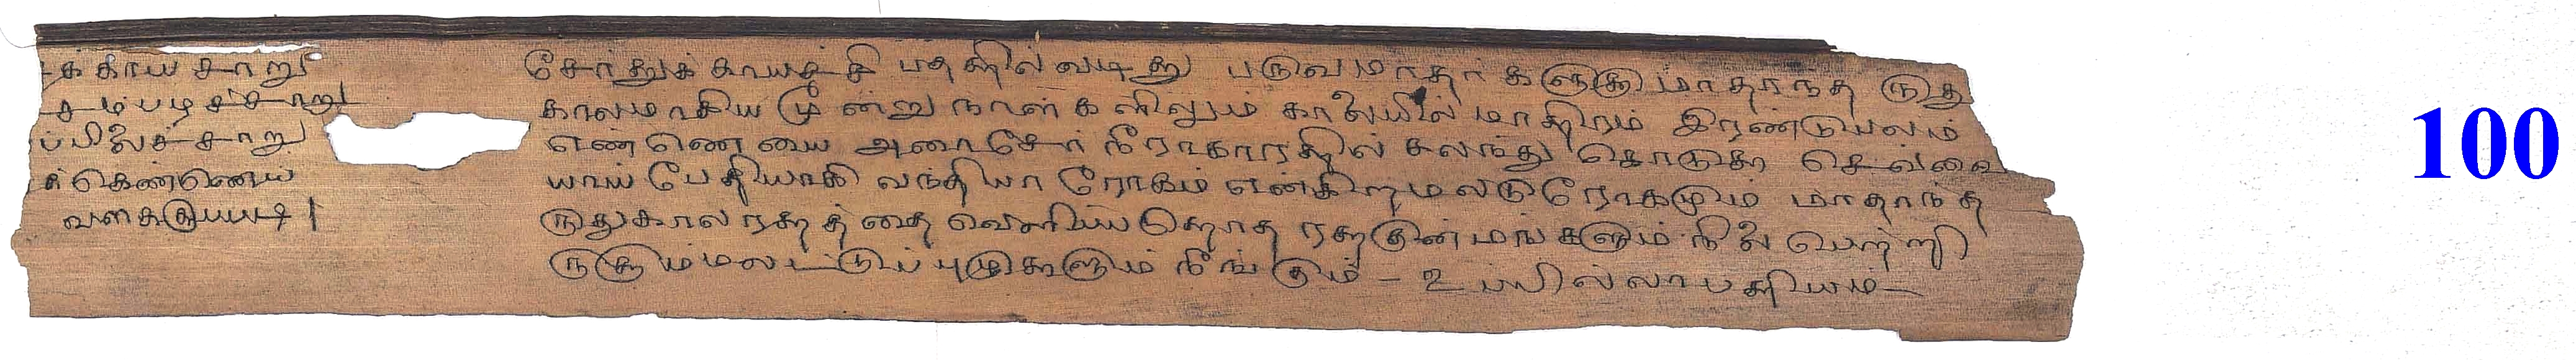 க காய சாறு
சம்பழச்சாறு
ப்பிலைச்சாறு
கெண்ணெய்
வகைக்குப்படி |
சேர்த்துக் காயச்சி பதனில் வடித்து பருவமாதர்களுக்கு மாதாந்த ருது
காலமாகிய மூன்று நாள்களிலும் காலையில் மாத்திரம் இரண்டுபலம்
எண்ணெயை அரைசேர் நீராகாரத்தில் கலந்து கொடுக்க செவ்வை
யாய் பேதியாகி வந்தியா ரோகம் என்கிற மலடுரோகமும் மாதாந்த
ருதுகால ரத்தத்தை வெளியிடாத ரத்தகுன்மங்களும் நிலை பெற்றி
ருக்கும் மலட்டுப் புழுக்களும் நீங்கும் - உப்பில்லாபத்தியம் -
100